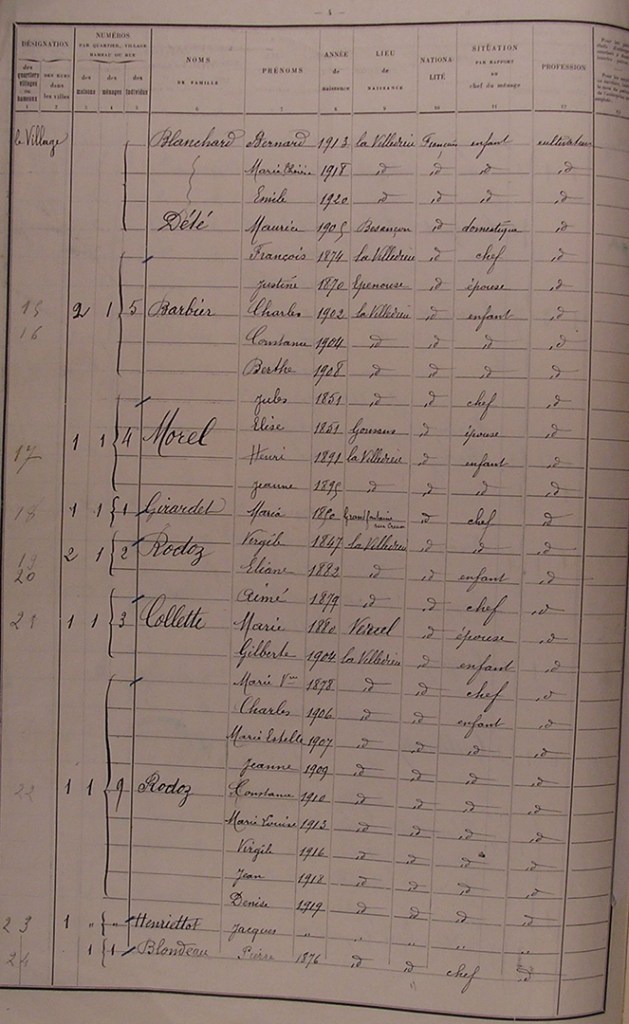 — 4 —
DÉSIGNATION NUMÉROS PAR QUARTIER, VILLAGE HAMEAU OU RUE NOMS DE FAMILLE PRÉNOMS ANNÉE de NAISSANCE LIEU de NAISSANCE NATIONALITÉ SITUATION PAR RAPPORT au chef du ménage PROFESSION
des quartiers villages ou hameaux des rues dans les villes des maisons des ménages des individus
1 2 3 4 5 6 7 8 9 10 11 12
le Village Blanchard Bernard 1913 la Villedieu Français enfant cultivateur
Marie 1918 id id id id
Emile 1920 id id id id
Dété Maurice 1905 Besançon id domestique id
François 1874 la Villedieu id chef id
Justine 1870 Epenouse id épouse id
15 16 2 1 5 Barbier Charles 1902 la Villedieu id enfant id
Constance 1904 id id id id
Berthe 1908 id id id id
Jules 1851 id id chef id
Elise 1851 id épouse id
17 1 1 4 Morel Henri 1891 la Villedieu id enfant id
Jeanne 1895 id id id id
18 1 1 1 Girardet Maria 1850 id chef id
19 20 2 1 2 Rodoz Virgile 1847 la Villedieu id id id
Eliane 1882 id id enfant id
Aimé 1879 id id chef id
21 1 1 3 Collette Marie 1880 Vercel id épouse id
Gilberte 1904 la Villedieu id enfant id
Marie Vve 1878 id id chef id
Charles 1906 id id enfant id
Marie Estelle 1907 id id id id
Jeanne 1909 id id id id
22 1 1 9 Rodoz Constance 1910 id id id id
Marie Louise 1913 id id id id
Virgile 1916 id id id id
Jean 1918 id id id id
Denise 1919 id id id id
23 1 " " Henriettot Jacques " " " " "
24 1 1 Blondeau Pierre 1876 id id chef id